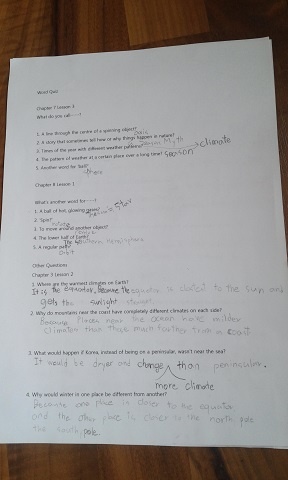 Word Quiz
Chapter 7 Lesson 3
What do you call-----?
1. A line through the centre of a spinning object? axis
2. A story that sometimes tell how or why things happen in nature? Myth
3. Times of the year with different weather patterns?
4. The pattern of weather at a certain place over a long time? season climate
5. Another word for 'ball'?
sphere
Chapter 8 Lesson 1
What's another word for-----?
1. A ball of hot, glowing gases? Star
2. Spin? rotate
3. To move around another object?
4. The lower half of Earth?
5. A regular path? The southern hemisphere
orbit
Other Questions
Chapter 3 Lesson 2
1. Where are the warmest climates on Earth?
It is the equator, because the equator is closest to the sun and
gets the sunlight
2. Why do mountains near the coast have completely different climates on each side?
Because places near the ocean have milder
climates than those much further from a coast
3. What would happen if Korea, instead of being on a peninsular, wasn't near the sea?
It would be dryer and change than peninsular.
more climate
4. Why would winter in one place be different from another?
because one place is closer to the equator
and the other place is closer to the north pole
the south pole